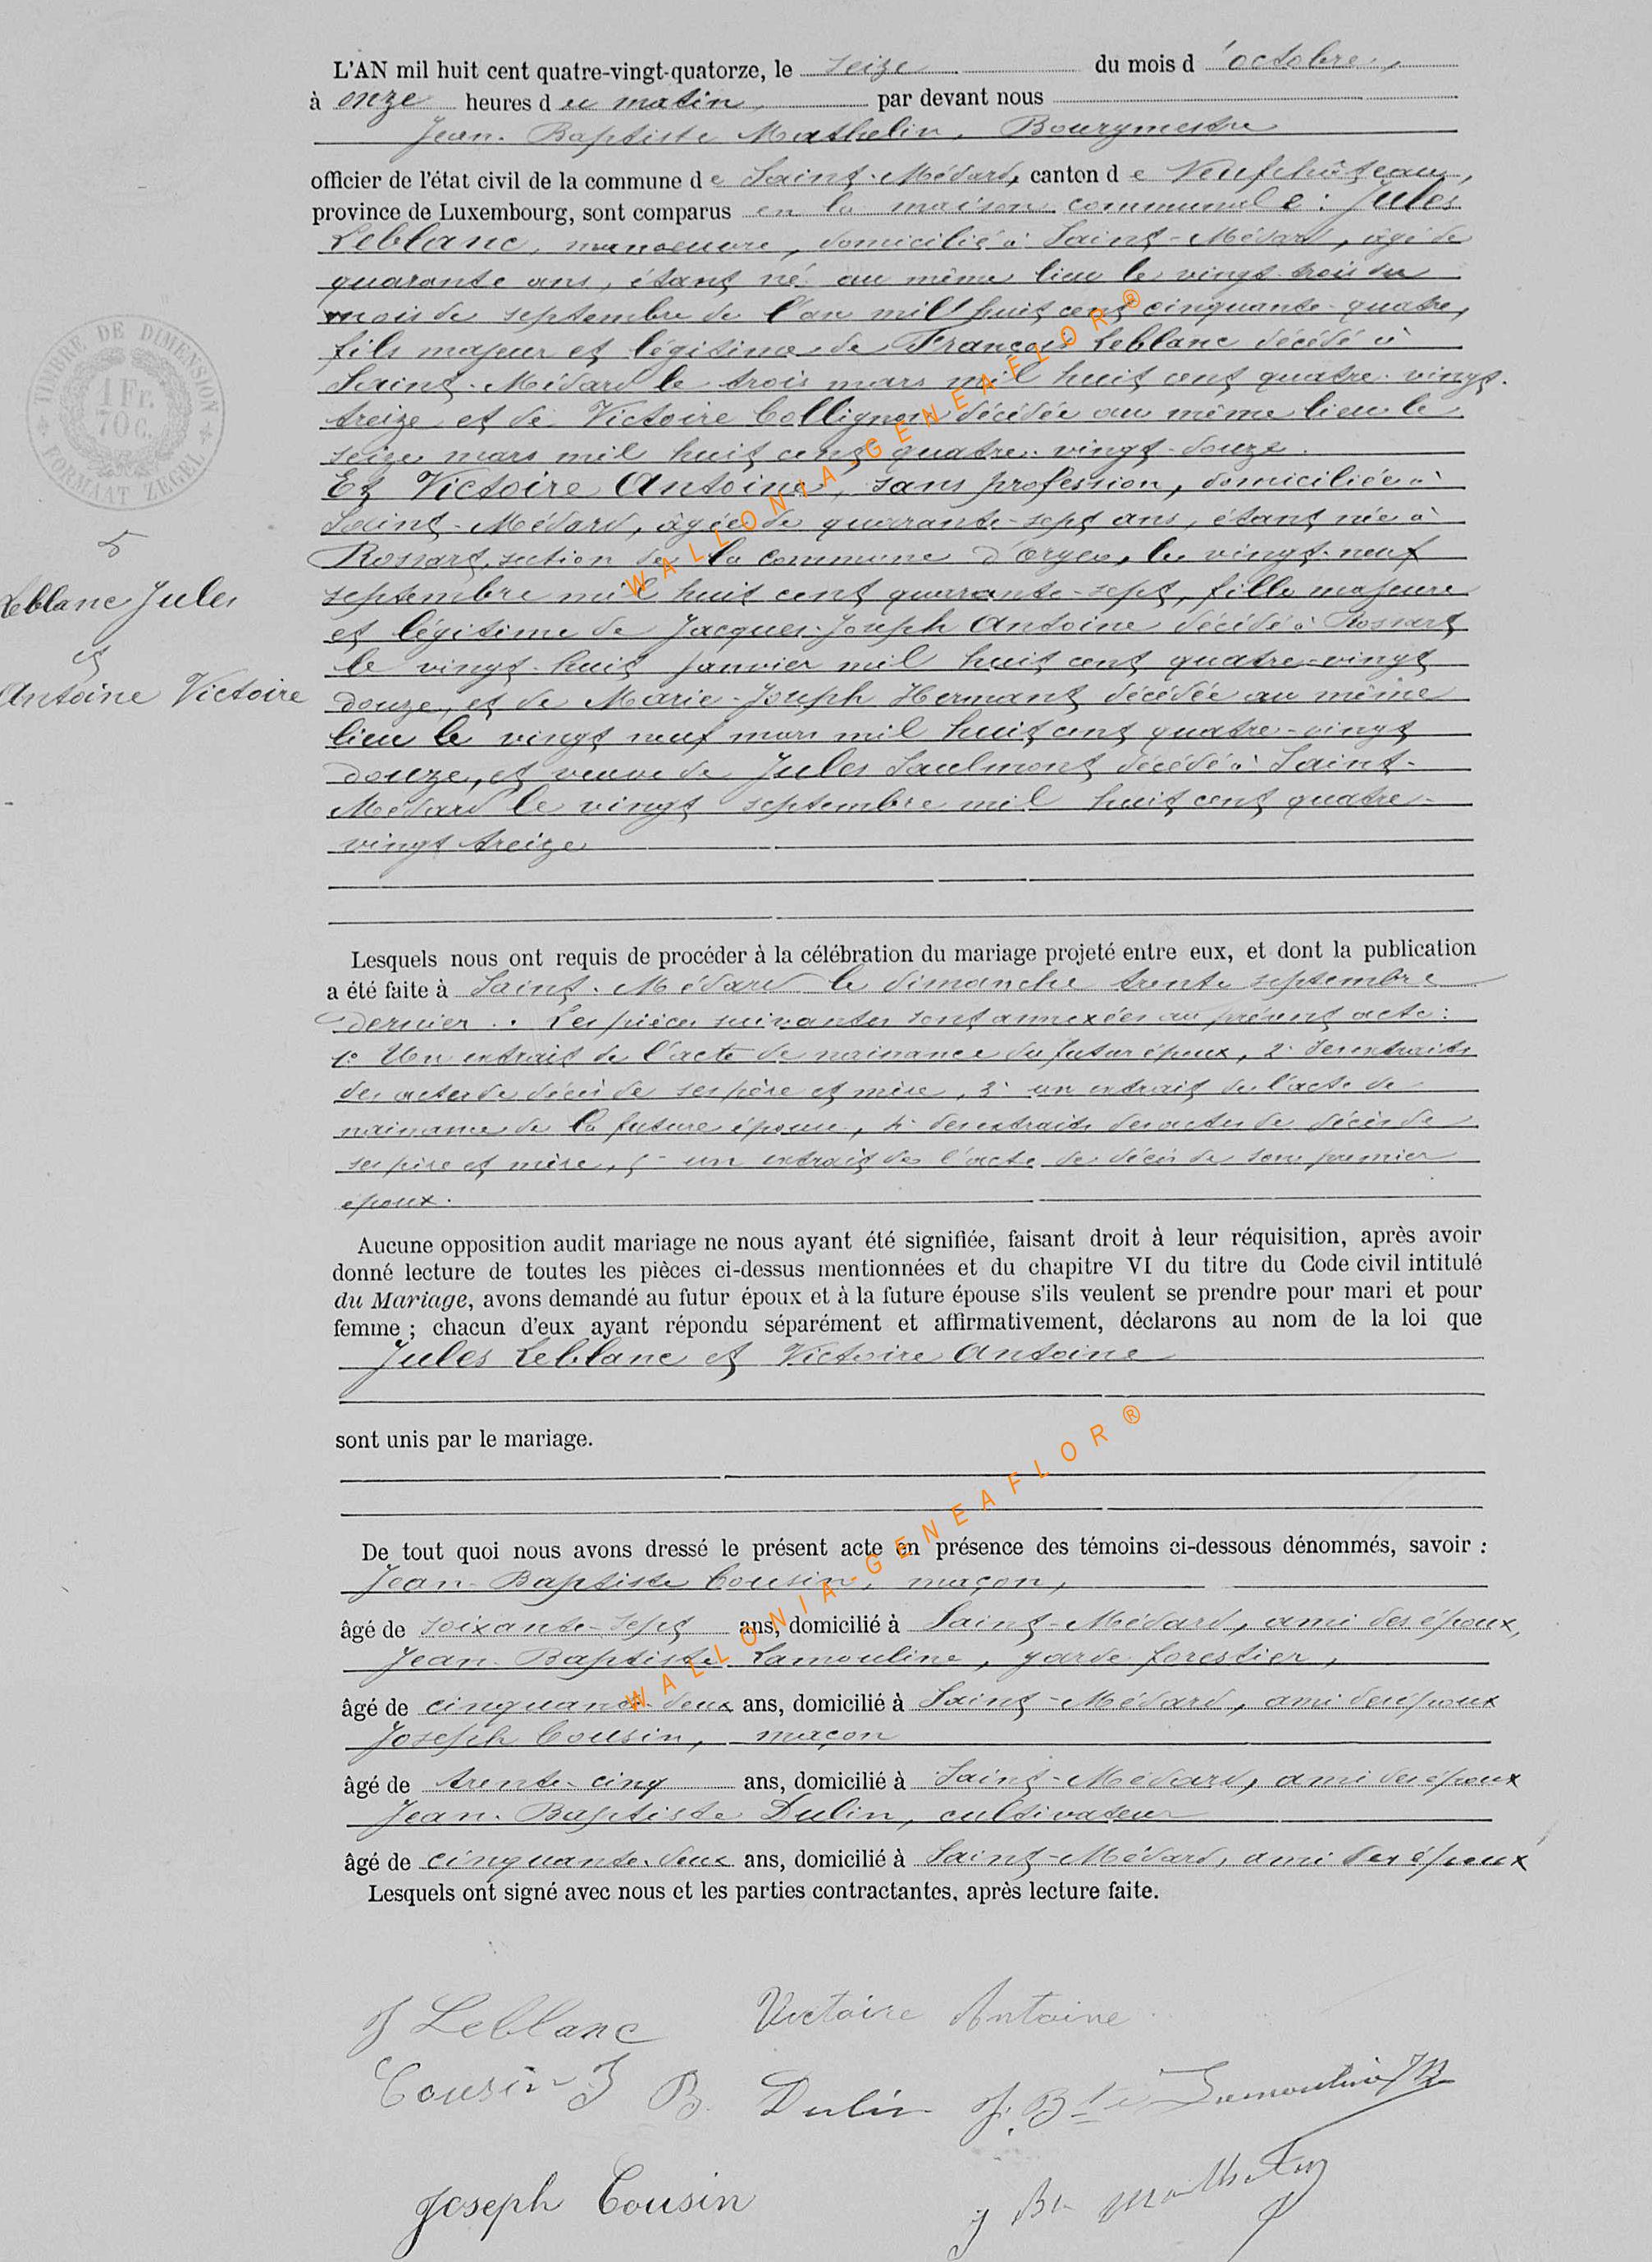 L'AN mil huit cent quatre-vingt-quatorze, le seize du mois d'octobre,
à onze heures du matin, par devant nous
Jean-Baptiste Mathelin, Bourgmestre
officier de l'état civil de la commune de Saint-Médard, canton de Neufchâteau,
province de Luxembourg, sont comparus en la maison communale : Jules
Leblanc, manoeuvre, domicilié à Saint-Médard, âgé de
quarante ans, étant né au même lieu le vingt-trois du
mois de septembre de l'an mil huit cent cinquante-quatre,
fils majeur et légitime de François Leblanc décédé à
Saint-Médard le trois mars mil huit cent quatre-vingt-
treize et de Victoire Collignon décédée au même lieu le
seize mars mil huit cent quatre-vingt-douze.
Et Victoire Antoine, sans profession, domiciliée à
Saint-Médard, âgée de quarante-sept ans, étant née à
Rossart, section de la commune d'Orgeo, le vingt-neuf
septembre mil huit cent quarante-sept, fille majeure
et légitime de Jacques-Joseph Antoine décédé à Rossart
le vingt-huit janvier mil huit cent quatre-vingt
douze, et de Marie-Joseph Hermant décédée au même
lieu le vingt neuf mars mil huit cent quatre-vingt
douze, et veuve de Jules Saulmont décédé à Saint-
Médard le vingt septembre mil huit cent quatre-
vingt treize
TIMBRE DE DIMENSION
1 Fr.
70 C.
FORMAAT ZEGEL
5
Leblanc Jules
et
Antoine Victoire
WALLONIA-GENEAFLOR®
Lesquels nous ont requis de procéder à la célébration du mariage projeté entre eux, et dont la publication
a été faite à Saint-Médard le dimanche trente septembre
dernier. Les pièces suivantes sont annexées au présent acte :
1° Un extrait de l'acte de naissance du futur époux, 2° des extraits
des actes de décès de ses père et mère, 3° un extrait de l'acte de
naissance de la future épouse, 4° des extraits des actes de décès de
ses père et mère, 5° un extrait de l'acte de décès de son premier
époux.
Aucune opposition audit mariage ne nous ayant été signifiée, faisant droit à leur réquisition, après avoir
donné lecture de toutes les pièces ci-dessus mentionnées et du chapitre VI du titre du Code civil intitulé
du Mariage, avons demandé au futur époux et à la future épouse s'ils veulent se prendre pour mari et pour
femme ; chacun d'eux ayant répondu séparément et affirmativement, déclarons au nom de la loi que
Jules Leblanc et Victoire Antoine
sont unis par le mariage.
De tout quoi nous avons dressé le présent acte en présence des témoins ci-dessous dénommés, savoir :
Jean-Baptiste Cousin, maçon,
âgé de soixante-sept ans, domicilié à Saint-Médard, ami des époux,
Jean-Baptiste Lamouline, garde forestier,
âgé de cinquante-deux ans, domicilié à Saint-Médard, ami des époux
Joseph Cousin, maçon
âgé de trente-cinq ans, domicilié à Saint-Médard, ami des époux
Jean-Baptiste Dulin, cultivateur
âgé de cinquante-deux ans, domicilié à Saint-Médard, ami des époux
Lesquels ont signé avec nous et les parties contractantes, après lecture faite.
WALLONIA-GENEAFLOR®
J Leblanc Victoire Antoine
Cousin J B. Dulin J. Bte Lamouline
Joseph Cousin J Bte Mathelin